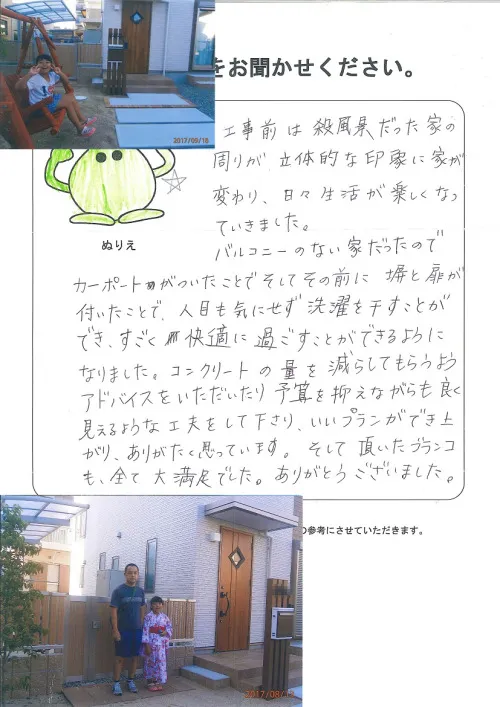 2017/08/16
をお聞かせください。
工事前は殺風景だった家の
周りが立体的な印象に家が
変わり、日々生活が楽しくなっ
ていきました。
ぬりえ
バルコニーのない家だったので
カーポートがついたことでそしてその前に塀と扉が
付いたことで、人目も気にせず洗濯を干すことが
でき、すごく快適に過ごすことができるように
なりました。コンクリートの量を減らしてもらうよう
アドバイスをいただいたり予算を抑えながらも良く
見えるような工夫をして下さり、いいプランができ上
がり、ありがたく思っています。そして頂いたブランコ
も、全て大満足でした。ありがとうございました。
の参考にさせていただきます。
2017/08/